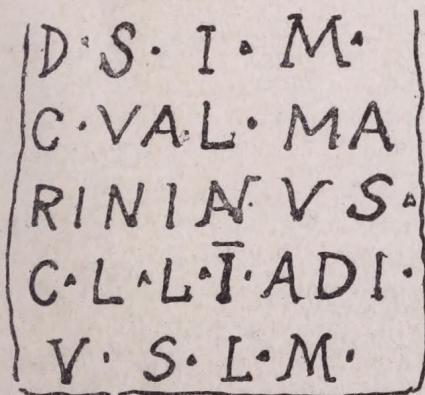 D·S·I·M·
C·VAL·MA
RINI N I AN·VS·
C·L·L·Ī·ADI·
V·S·L·M·